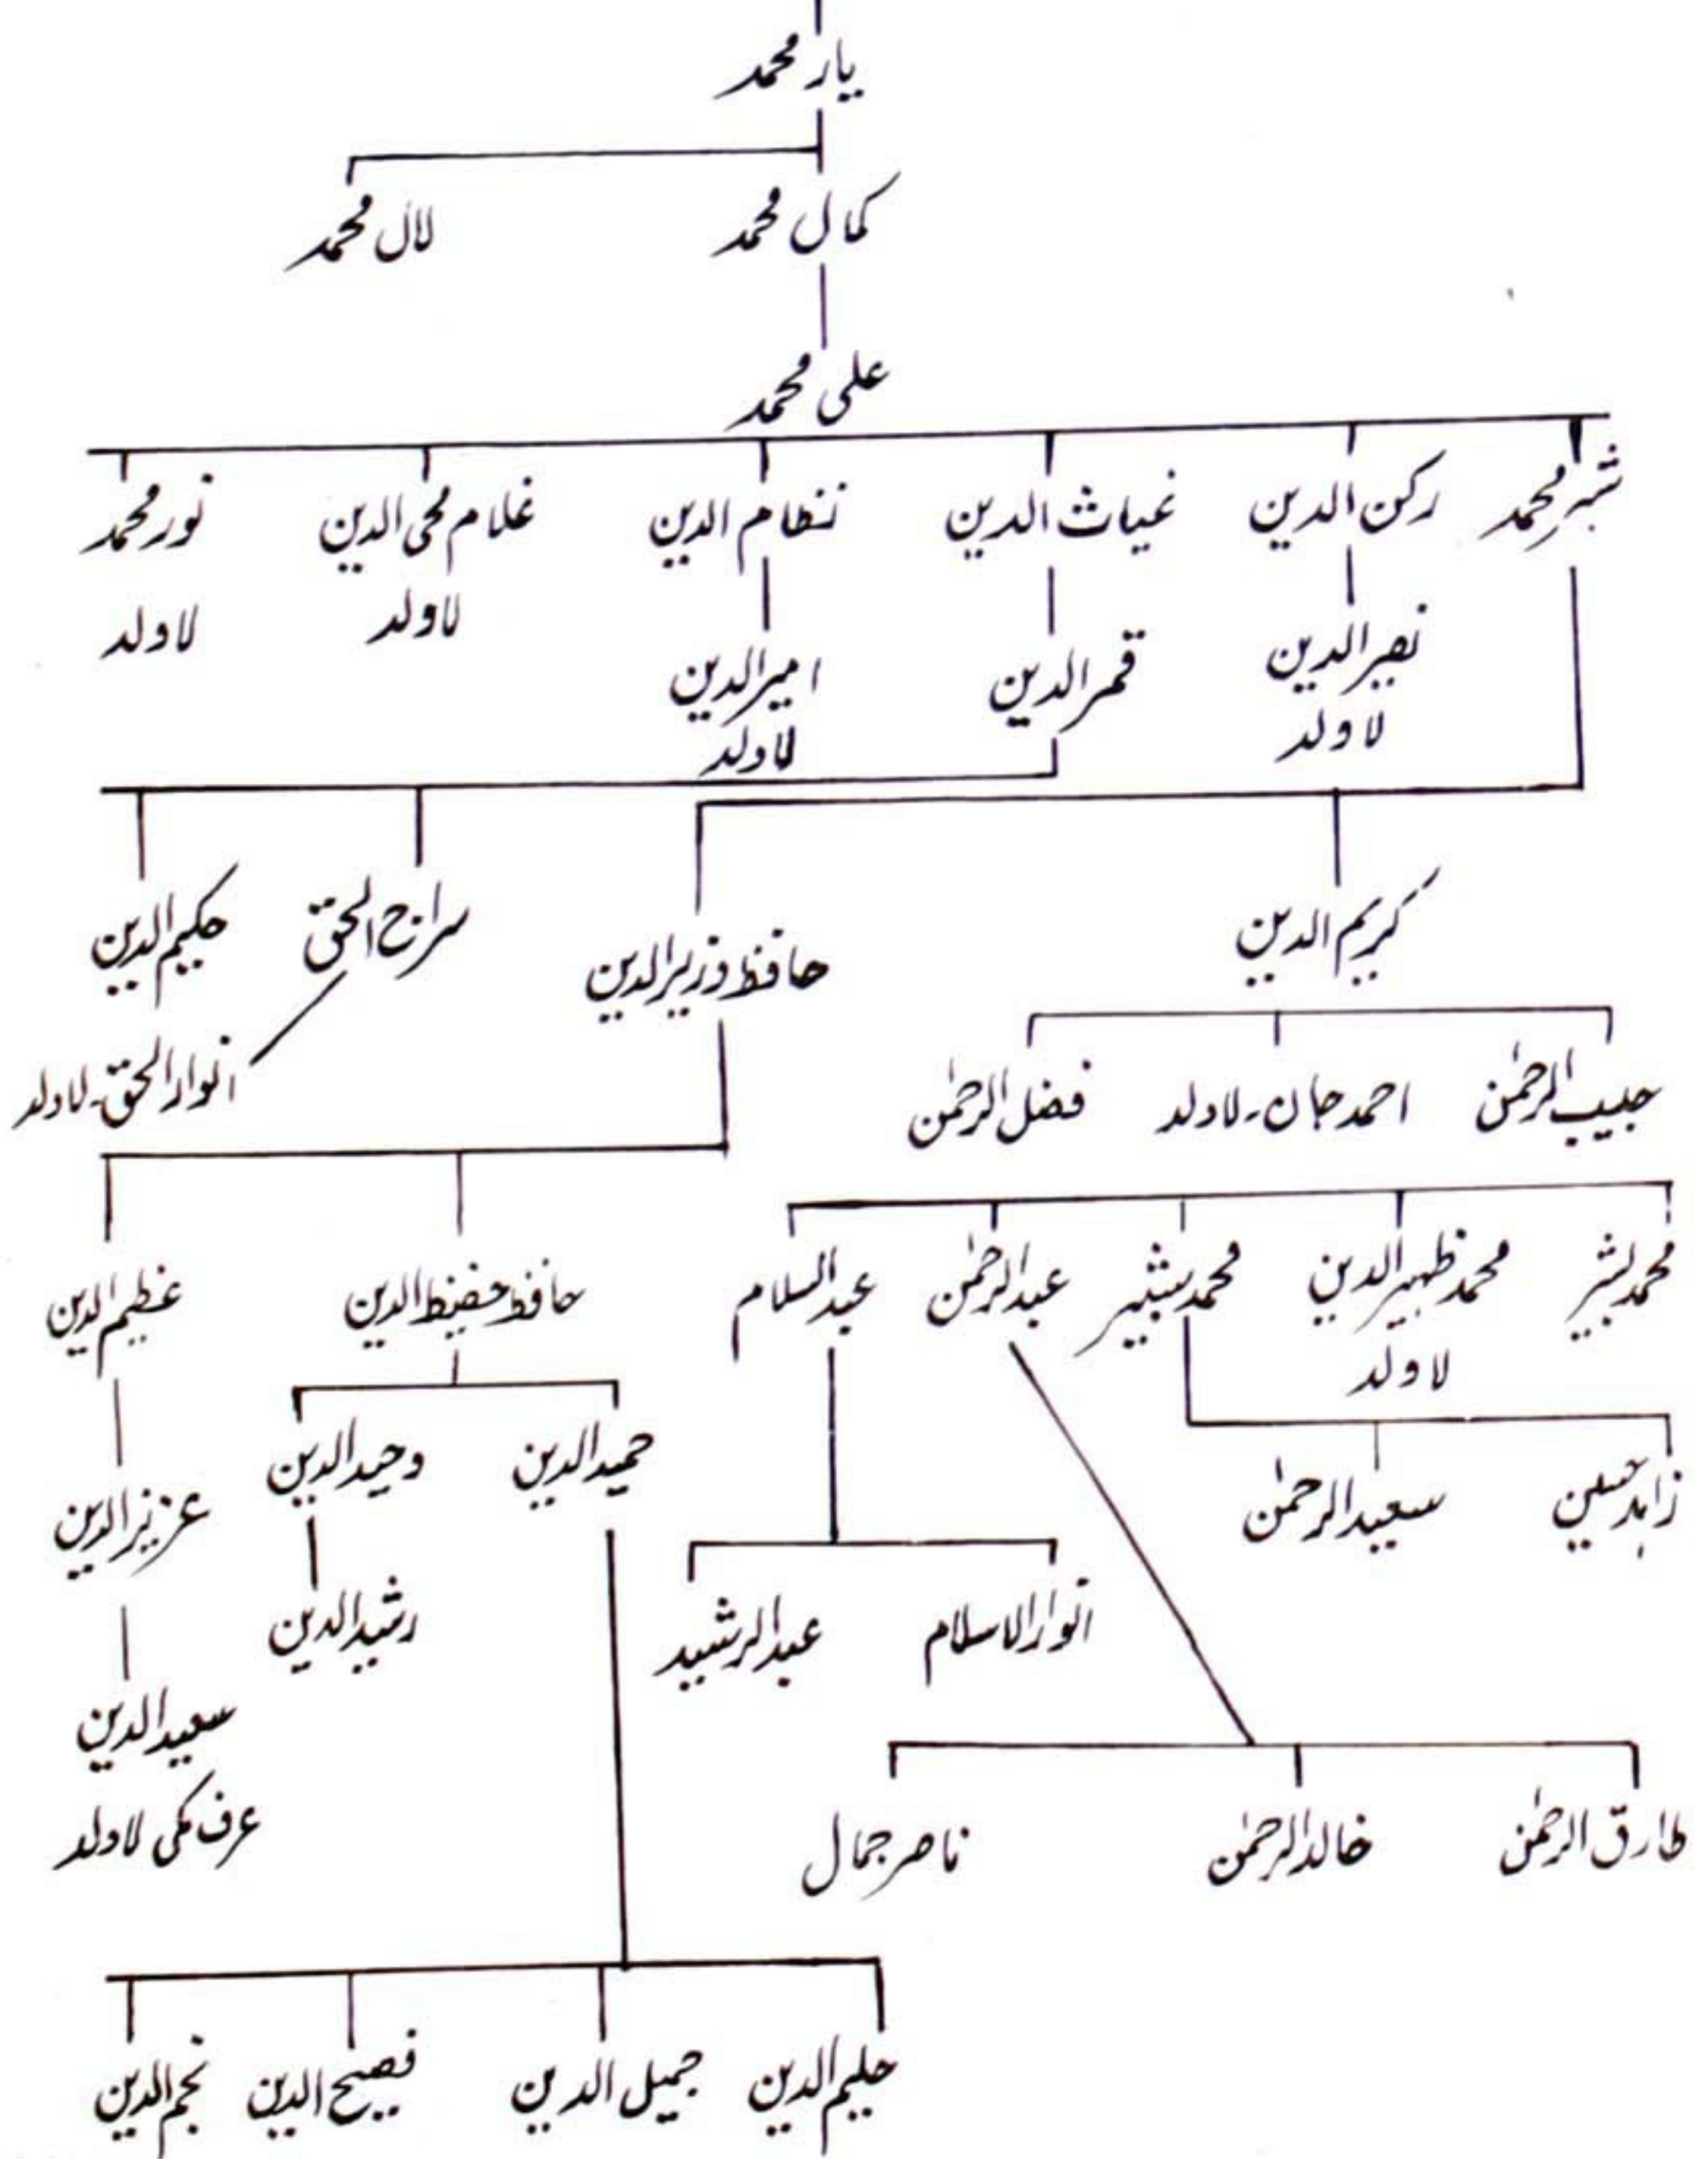 یار محمد
کمال محمد لال محمد
علی محمد
شیر محمد رکن الدین غیاث الدین نظام الدین غلام محی الدین نور محمد
نصیر الدین قمر الدین امیر الدین لاولد لاولد
لاولد لاولد
کریم الدین حافظ وزیر الدین سراج الحق حکیم الدین
حبیب الرحمٰن احمد جان۔لاولد فضل الرحمٰن انوار الحق۔لاولد
محمد بشیر محمد ظہیر الدین محمد شبیر عبد الرحمٰن عبد السلام حافظ حفیظ الدین عظیم الدین
لاولد
زاہد حسین سعید الرحمٰن حمید الدین وحید الدین عزیز الدین
انوار الاسلام عبد الرشید رشید الدین سعید الدین
طارق الرحمٰن خالد الرحمٰن ناصر جمال عرف مکی لاولد
حلیم الدین جمیل الدین فصیح الدین نجم الدین